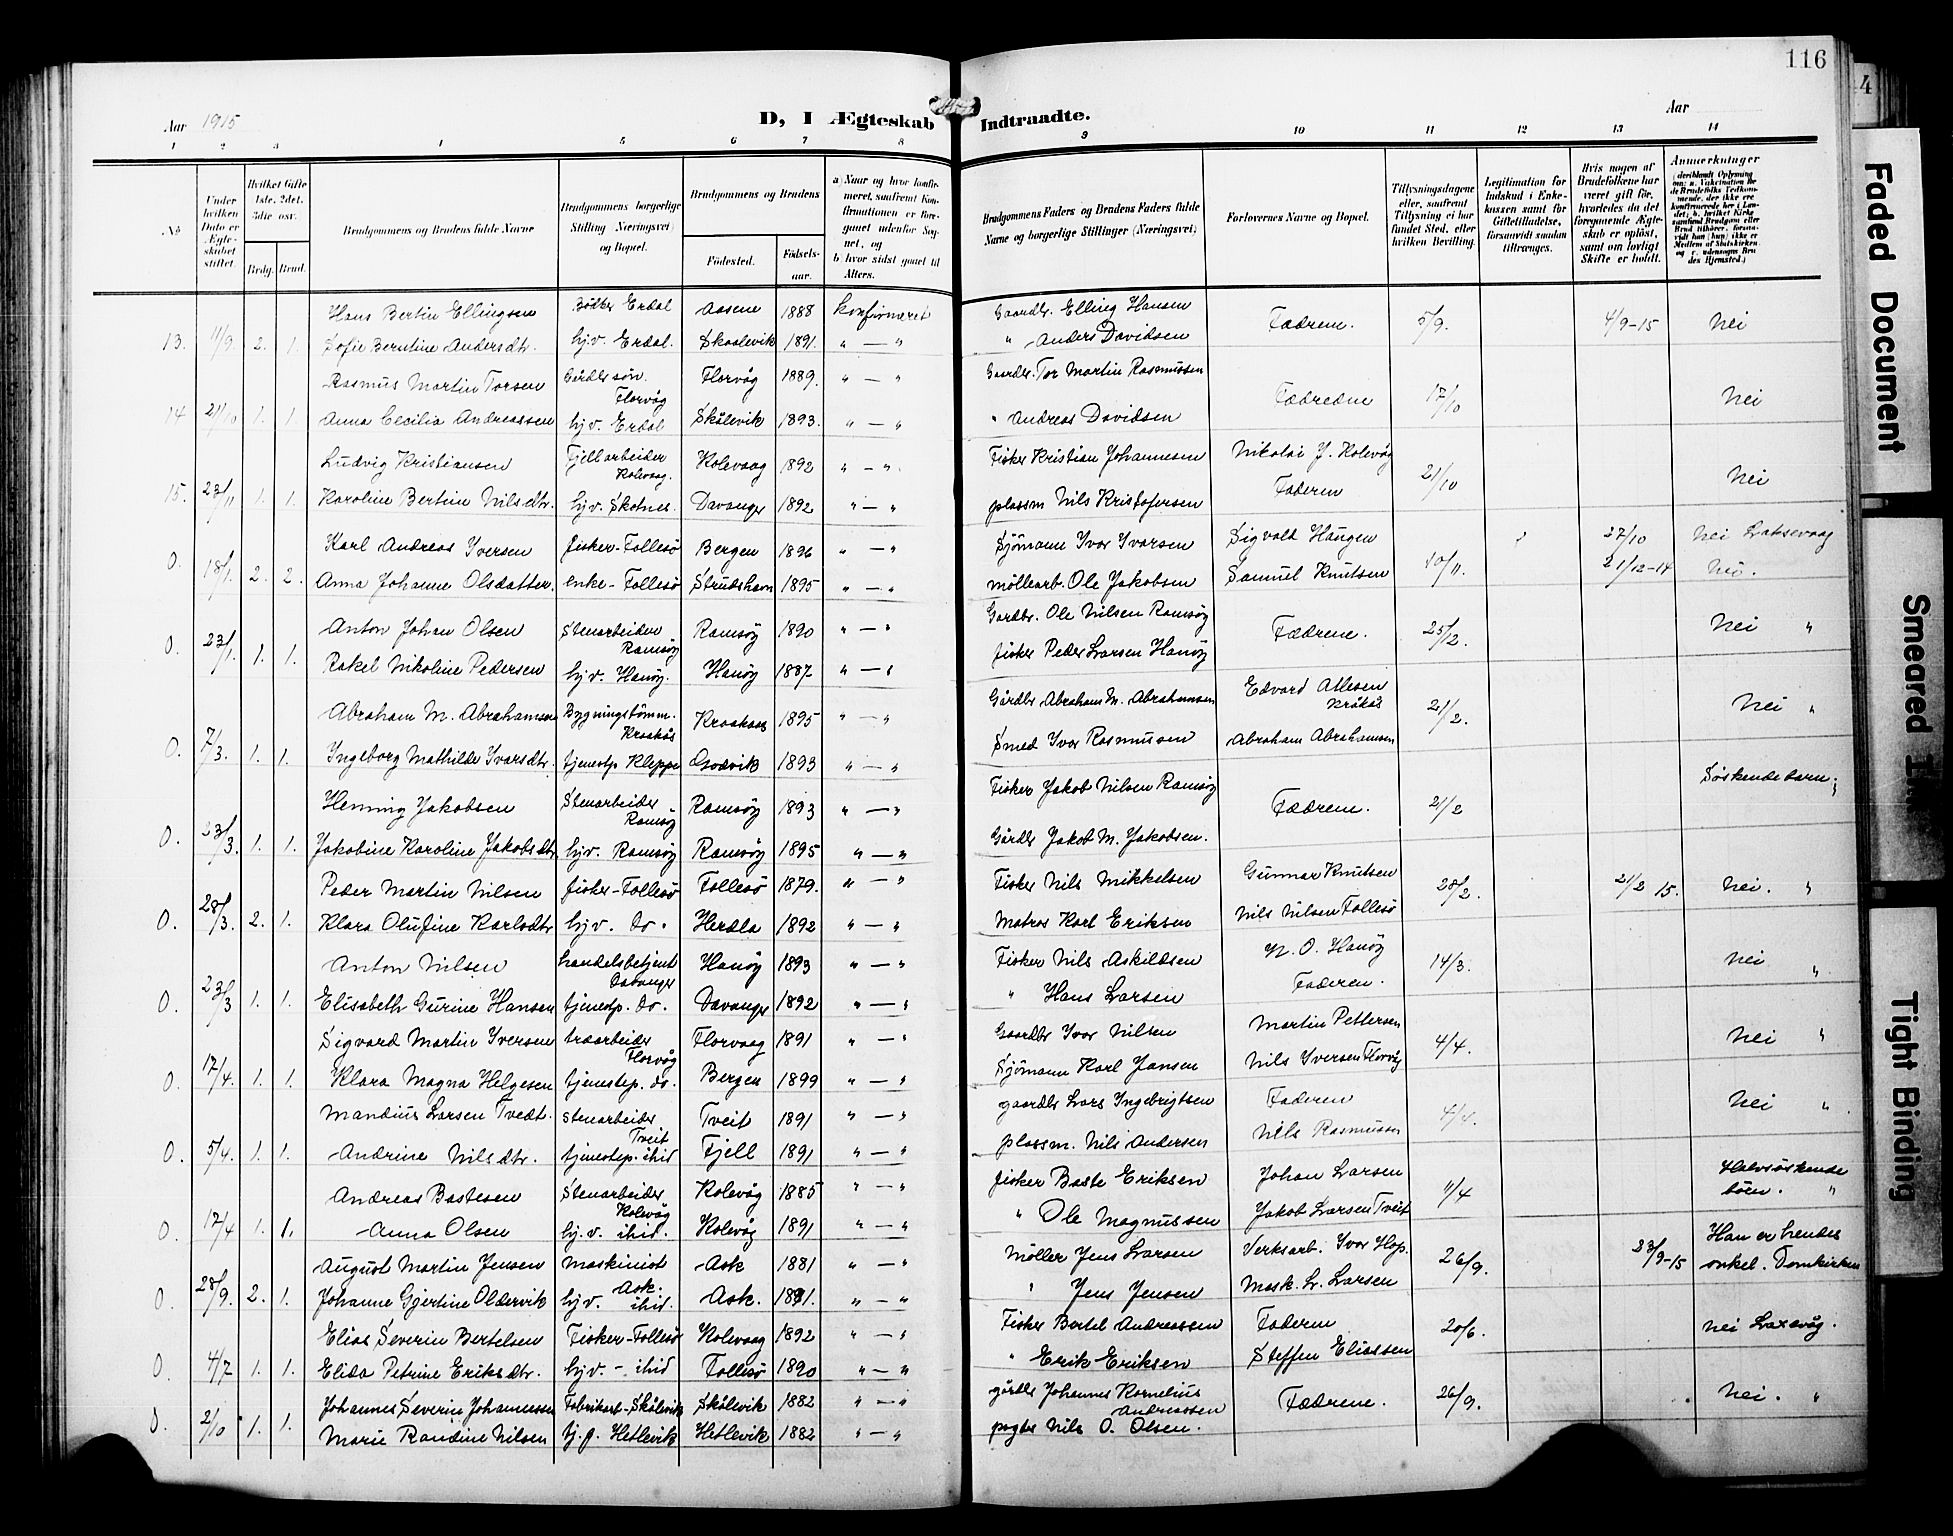 116
4
Aar 1915
D, I Ægteskab Indtraadte.
Aar
1 2 3 4 5 6 7 8 9 10 11 12 13 14
No
Under hvilken Dato er Ægteskabet stiftet.
Hvilket Gifte 1ste, 2det, 3die osv.
Brdg. Brud.
Brudgommens og Brudens fulde Navne
Brudgommens borgerlige Stilling (Næringsvei) og Bopæl.
Brudgommens og Brudens
Fødested.
Fødselsaar.
a) Naar og hvor konfirmeret, saafremt Konfirmationen er foregaaet udenfor Sognet, og
b) hvor sidst gaaet til Alters.
Brudgommens Faders og Brudens Faders fulde Navne og borgerlige Stillinger (Næringsvei)
Forlovernes Navne og Bopæl.
Tillysningsdagene eller, saafremt Tillysning ei har fundet Sted, efter hvilken Bevilling.
Legitimation for Indskud i Enkekassen samt for Giftetilladelse, forsaavidt saadan tiltrænges.
Hvis nogen af Brudefolkene har været gift før, hvorledes da det foregaaende Ægteskab er opløst, samt om lovligt Skifte er holdt.
Anmærkninger
Hans Bertin Ellingsen Bødker Erdal Aasene 1888 konfirmeret Gaardbr. Elling Hansen
13. 11/9 2. 1. Sofie Berntine Andersdtr. hj.v. Erdal. Skaalevik 1891. " — " " Anders Davidsen Fædrene. 5/9. 4/9-15 Nei
Rasmus Martin Torsen Gårdbr søn. Florvåg Florvåg 1889. " — " Gaardbr. Tor Martin Rasmussen
14 21/10 1. 1. Anna Cecilia Andreassen hjv. Erdal Skålevik 1893. " — " " Andreas Davidsen Fædrene 17/10 Nei
Ludvig Kristiansen Fjellarbeider Kolevaag. Kolevaag 1892 " — " Fisker Kristian Johannesen Nikolai J. Kolevåg
15. 23/11 1. 1. Karoline Bertine Nilsdtr. hjv. Skotnes. Davanger 1892 " — " plassm Nils Kristofersen Faderen 21/10 Nei
Karl Andreas Iversen fisker-Follesø Bergen 1896 " — " Sjømann Ivar Ivarsen Sigvald Haugen 27/10 Nei Laksevaag
0. 18/1. 2. 2. Anna Johanne Olsdatter. enke-Follesø Strudshavn 1895 " — " møllearb. Ole Jakobsen Samuel Knutsen 10/11. 21/12-14 Nei.
Anton Johan Olsen Stenarbeider Ramsøy Ramsøy 1890 " — " Gardbr. Ole Nilsen Ramsøy
0. 23/1. 1. 1. Rakel Nikoline Pedersen hjv. Hanøy. Hanøy 1887 " — " fisker Peder Larsen Hanøy Fædrene. 25/12. Nei "
Abraham M. Abrahamsen Bygningstømm. Kraakås Kraakaas 1895 " — " Gårdbr Abraham M. Abrahamsen Edvard Atlesen Kråkås
0. 7/3. 1. 1. Ingeborg Mathilde Ivarsdtr. tjenestp. Kleppe Godvik 1893 " — " Smed Ivar Rasmussen Abraham Abrahamsen 21/2. Nei "
Henning Jakobsen Stenarbeider Ramsøy Ramsøy 1893 " — " Fisker Jakob Nilsen Ramsøy Søskendebarn "
0. 23/3. 1. 1. Jakobine Karoline Jakobsdtr hjv. Ramsøy Ramsøy 1895 " — " Gårdbr Jakob M. Jakobsen. Fædrene. 21/2
Peder Martin Nilsen fisker-Follesø Follesø 1879. " — " Fisker Nils Mikkelsen Gunnar Knutsen
0. 28/3. 2. 1. Klara Olufine Karlsdtr hjv. do. Herdla 1892 " — " Matros Karl Eriksen Nils Nilsen Follesø 28/2. 21/2 15. Nei. "
Anton Nilsen handelsbetjent Davanger Hanøy 1893 " — " Fisker Nils Askildsen N. O. Hanøy
0. 23/3 1. 1. Elisabeth Gurine Hansen tjenestp. do. Davanger 1892 " — " " Hans Larsen Faderen. 14/3. Nei "
Sigvard Martin Iversen træarbeider Florvåg Florvaag 1891 " — " Gaardbr Ivar Nilsen Martin Pettersen
0. 17/4. 1. 1. Klara Magna Helgesen tjenestep. do. Bergen 1899 " — " Sjømann Karl Jansen Nils Iversen Florvåg 4/4. Nei "
Mandius Larsen Tvedt. stenarbeider Tveit Tveit 1891 " — " gaardbr Lars Ingebrigtsen Faderen
0. 5/4. 1. 1. Andrine Nilsdtr. tjenestep. ibid Fjell 1891 " — " plassm. Nils Andersen Nils Rasmussen 4/4. Nei "
Andreas Bastesen Stenarbeider Kolevåg Kolevåg 1885 " — " fisker Baste Eriksen Johan Larsen Halvsøskende
0. 17/4 1. 1. Anna Olsen hj.v. ibid. Kolevåg 1891 " — " " Ole Magnussen Jakob Larsen Tveit 11/4 børn. "
August Martin Jensen Maskinist Ask. Ask 1881 " — " Møller Jens Larsen Verksarb. Ivar Hop. Han er hendes
0. 28/9. 2. 1. Johanne Gjertine Oldervik hjv. ibid. Ask. 1891. " — " " Jens Jensen Mask. L. Larsen 26/9. 23/9-15 onkel. Domkirken
Elias Severin Bertelsen Fisker-Follesø Kolevaag 1892 " — " Fisker Bertel Andreassen Faderen
0. 4/7 1. 1. Elida Petrine Eriksdtr. hjv - ibid Follesø 1890 " — " " Erik Eriksen Steffen Eliassen 20/6. Nei Laxevåg.
Johannes Severin Johannessen Fabrikarb-Skålevik Skålevik 1882 " — " gårdbr Johannes Kornelius Andreassen
0. 2/10 1. 1. Marie Randine Nilsen tj.p. Hetlevik Hetlevik 1882 " — " Nils O. Olsen. Fædrene. 26/9. Nei. "
Faded Document
Smeared
Tight Binding